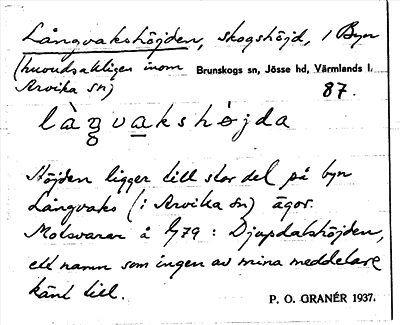 Långvakshöjden, skogshöjd, i Byn
(huvudsakligen inom Brunskogs sn, Jösse hd, Värmlands l.
Arvika sn) 87.
làŋvakshöjda
Höjden ligger till stor del på byn
Långvaks (i Arvika sn) ägor.
Motsvarar å G79: Djupdalshöjden,
ett namn som ingen av mina meddelare
känt till.
P. O. GRANÉR 1937.